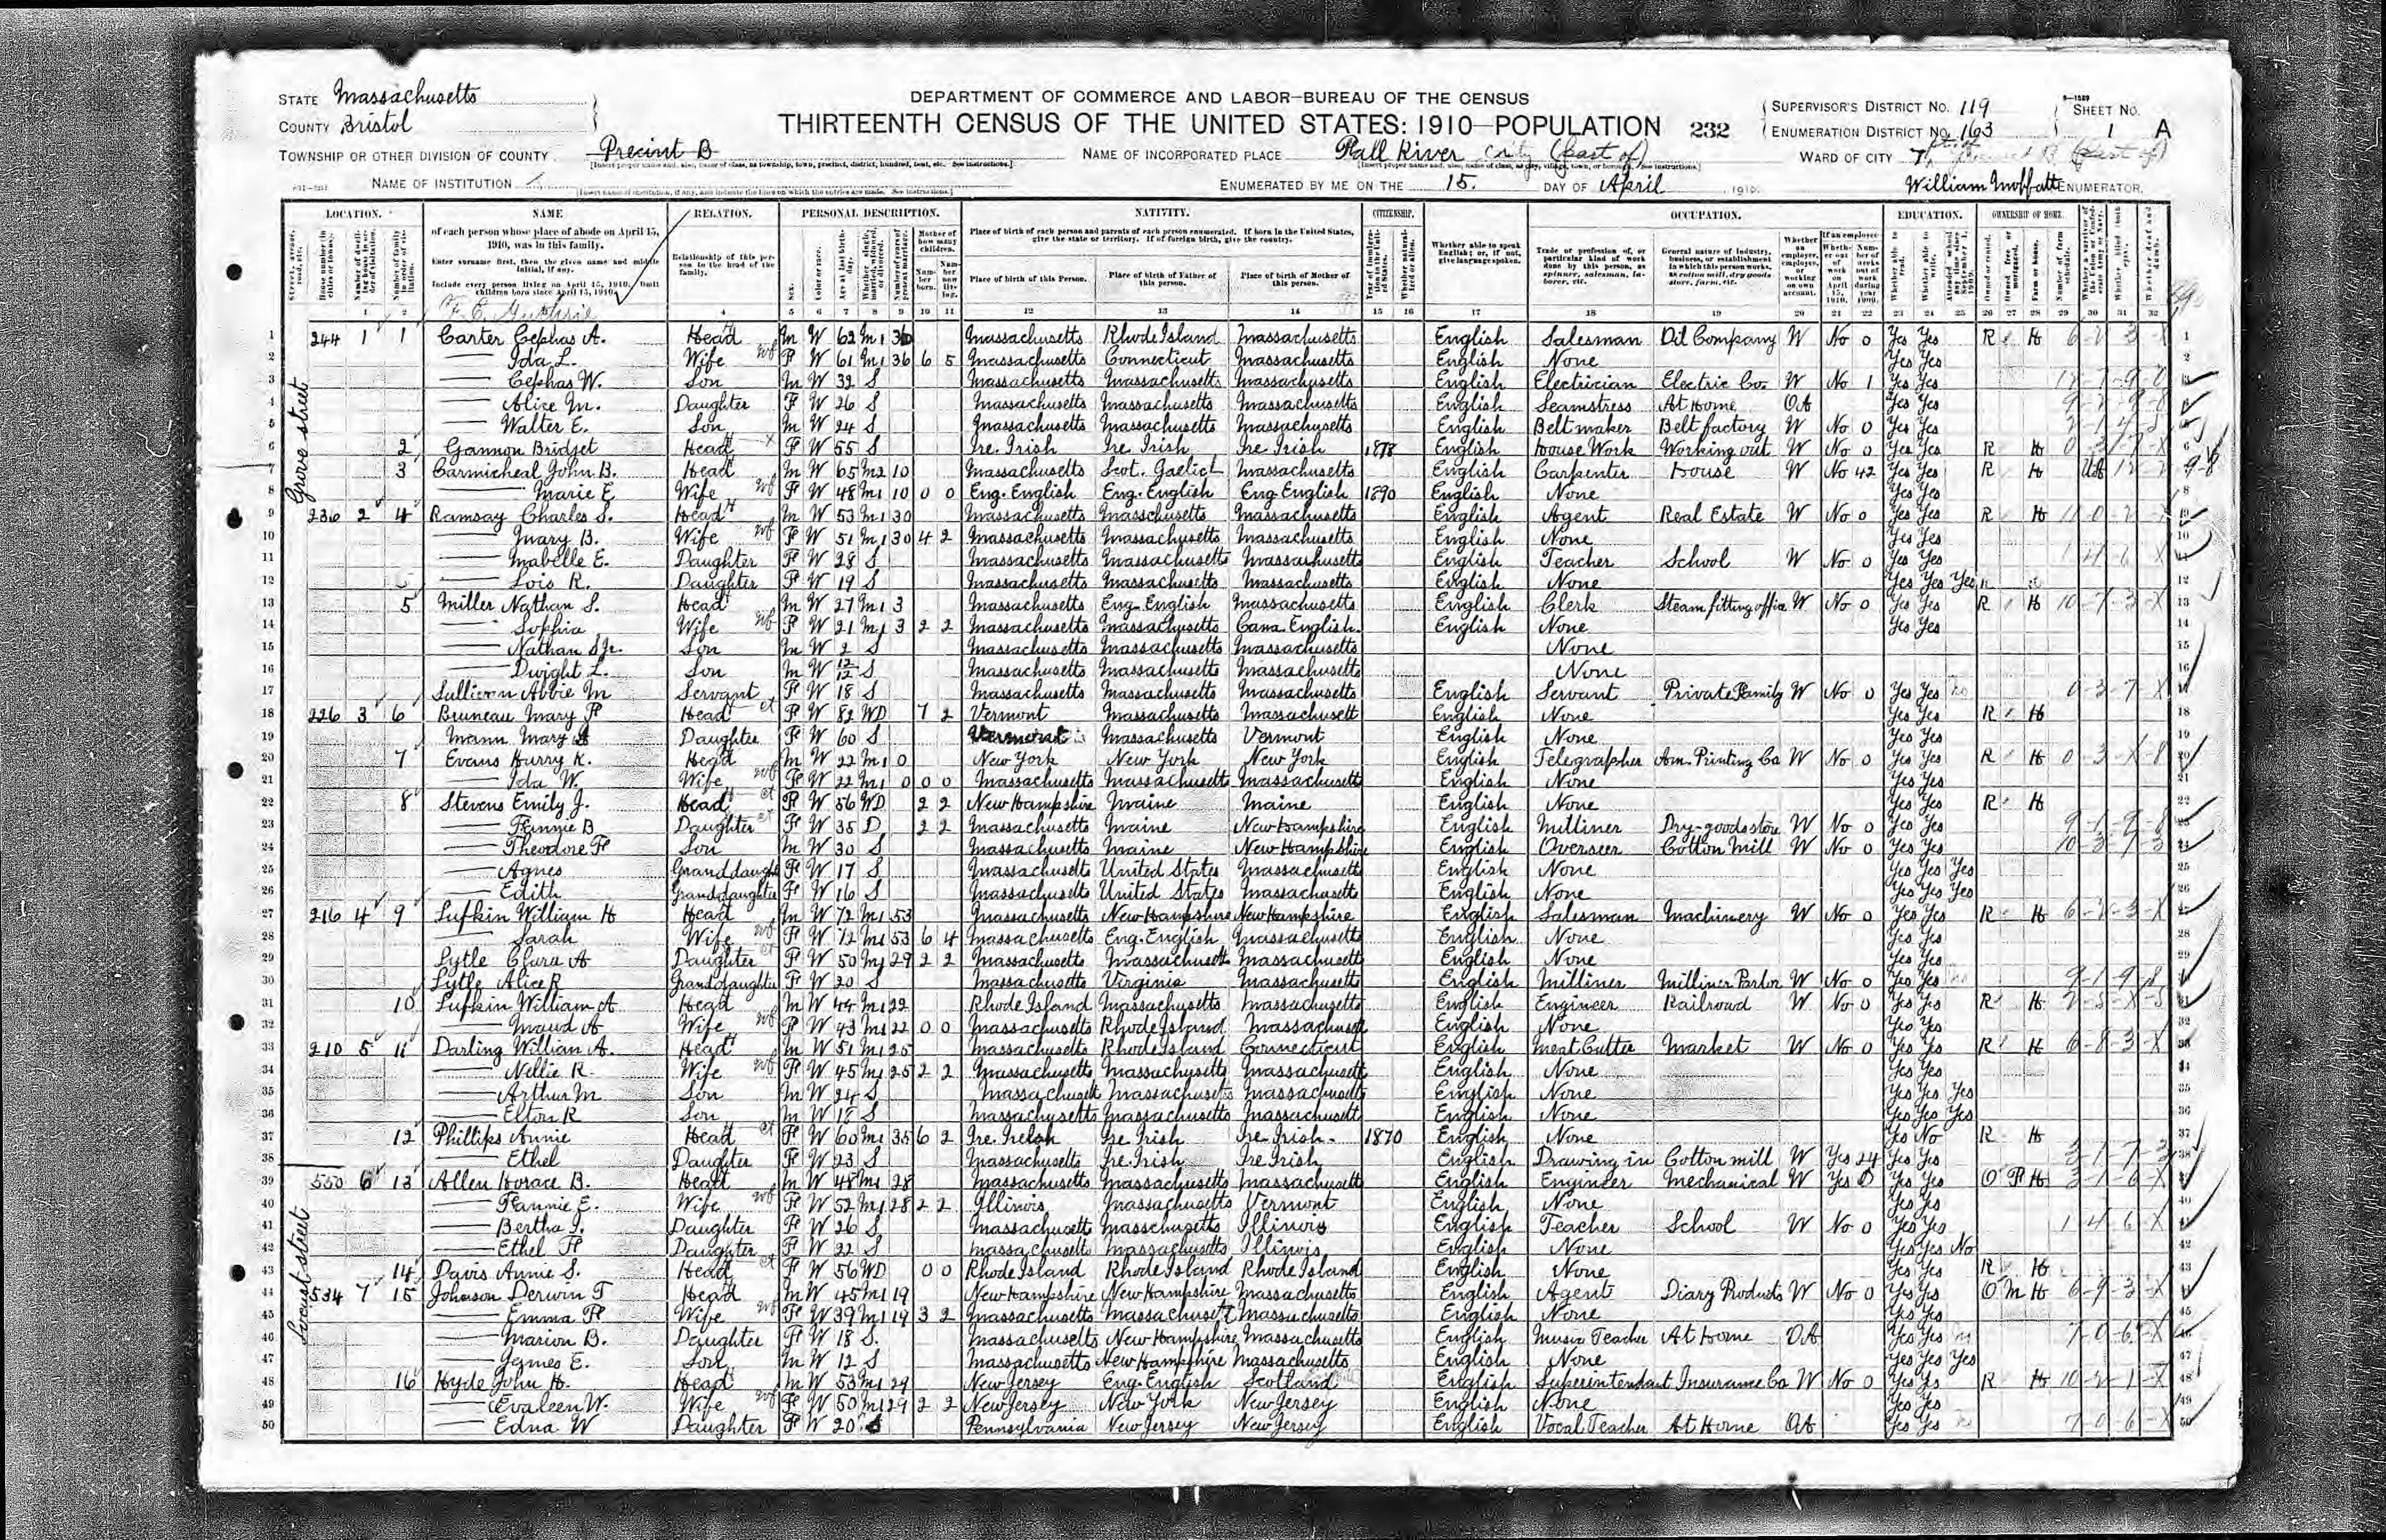 STATE Massachusetts
COUNTY Bristol
DEPARTMENT OF COMMERCE AND LABOR—BUREAU OF THE CENSUS
THIRTEENTH CENSUS OF THE UNITED STATES: 1910—POPULATION 232
SUPERVISOR'S DISTRICT NO. 119
ENUMERATION DISTRICT NO. 163
SHEET NO. 1 A
TOWNSHIP OR OTHER DIVISION OF COUNTY Precinct B
NAME OF INCORPORATED PLACE Fall River City (part of)
WARD OF CITY 7
NAME OF INSTITUTION
ENUMERATED BY ME ON THE 15. DAY OF April 1910.
William Moffatt ENUMERATOR.
LOCATION. NAME RELATION. PERSONAL DESCRIPTION. NATIVITY. CITIZENSHIP. OCCUPATION. EDUCATION. OWNERSHIP OF HOME.
of each person whose place of abode on April 15, 1910, was in this family.
Enter surname first, then the given name and middle initial, if any.
Include every person living on April 15, 1910. Omit children born since April 15, 1910.
Relationship of this person to the head of the family.
Place of birth of each person and parents of each person enumerated. If born in the United States, give the state or territory. If of foreign birth, give the country.
Place of birth of this Person. Place of birth of Father of this person. Place of birth of Mother of this person.
Whether able to speak English; or, if not, give language spoken.
Trade or profession of, or particular kind of work done by this person, as spinner, salesman, laborer, etc.
General nature of industry, business, or establishment in which this person works, as cotton mill, dry goods store, farm, etc.
Grove street
1 244 1 1 Carter Cephas A. Head M W 62 M1 36 Massachusetts Rhode Island Massachusetts English Salesman Oil Company W No 0 Yes Yes R H
2 Ida L. Wife F W 61 M1 36 6 5 Massachusetts Connecticut Massachusetts English None Yes Yes
3 Cephas W. Son M W 32 S Massachusetts Massachusetts Massachusetts English Electrician Electric Co. W No 1 Yes Yes
4 Alice M. Daughter F W 26 S Massachusetts Massachusetts Massachusetts English Seamstress At Home OA Yes Yes
5 Walter E. Son M W 24 S Massachusetts Massachusetts Massachusetts English Belt maker Belt factory W No 0 Yes Yes
6 2 Gannon Bridget Head F W 55 S Ire. Irish Ire Irish Ire Irish 1878 English House Work Working out W No 0 Yes Yes R H
7 3 Carmicheal John B. Head M W 65 M2 10 Massachusetts Scot. Gaelic Massachusetts English Carpenter House W No 42 Yes Yes R H UA
8 Marie E Wife F W 48 M1 10 0 0 Eng. English Eng. English Eng English 1890 English None Yes Yes
9 236 2 4 Ramsay Charles S. Head M W 53 M1 30 Massachusetts Massachusetts Massachusetts English Agent Real Estate W No 0 Yes Yes R H
10 Mary B. Wife F W 51 M1 30 4 2 Massachusetts Massachusetts Massachusetts English None Yes Yes
11 Mabelle E. Daughter F W 28 S Massachusetts Massachusetts Massachusetts English Teacher School W No 0 Yes Yes
12 Lois R. Daughter F W 19 S Massachusetts Massachusetts Massachusetts English None Yes Yes Yes
13 5 Miller Nathan S. Head M W 27 M1 3 Massachusetts Eng. English Massachusetts English Clerk Steam fitting office W No 0 Yes Yes R H
14 Sophia Wife F W 21 M1 3 2 2 Massachusetts Massachusetts Cana. English English None Yes Yes
15 Nathan S Jr. Son M W 2 S Massachusetts Massachusetts Massachusetts None
16 Dwight L. Son M W 12/12 S Massachusetts Massachusetts Massachusetts None
17 Sullivan Abbie M Servant F W 18 S Massachusetts Massachusetts Massachusetts English Servant Private Family W No 0 Yes Yes No
18 226 3 6 Bruneau Mary F Head F W 82 WD 7 2 Vermont Massachusetts Massachusett English None Yes Yes R H
19 Mann Mary A Daughter F W 60 S Vermont Massachusetts Vermont English None Yes Yes
20 7 Evans Harry K. Head M W 22 M1 0 New York New York New York English Telegrapher Am. Printing Co W No 0 Yes Yes R H
21 Ida W. Wife F W 22 M1 0 0 0 Massachusetts Massachusetts Massachusetts English None Yes Yes
22 8 Stevens Emily J. Head F W 56 WD 2 2 New Hampshire Maine Maine English None Yes Yes R H
23 Fannie B Daughter F W 35 D 2 2 Massachusetts Maine New Hampshire English Milliner Dry-goods store W No 0 Yes Yes
24 Theodore F Son M W 30 S Massachusetts Maine New Hampshire English Overseer Cotton Mill W No 0 Yes Yes
25 Agnes Granddaughter F W 17 S Massachusetts United States Massachusetts English None Yes Yes Yes
26 Edith Granddaughter F W 16 S Massachusetts United States Massachusetts English None Yes Yes Yes
27 216 4 9 Lufkin William H Head M W 72 M1 53 Massachusetts New Hampshire New Hampshire English Salesman Machinery W No 0 Yes Yes R H
28 Sarah Wife F W 72 M1 53 6 4 Massachusetts Eng. English Massachusetts English None Yes Yes
29 Lytle Clara A Daughter F W 50 M1 29 2 2 Massachusetts Massachusetts Massachusetts English None Yes Yes
30 Lytle Alice R Granddaughter F W 20 S Massachusetts Virginia Massachusetts English Milliner Milliner Parlor W No 0 Yes Yes
31 10 Lufkin William A Head M W 44 M1 22 Rhode Island Massachusetts Massachusetts English Engineer Railroad W No 0 Yes Yes R H
32 Maud A Wife F W 43 M1 22 0 0 Massachusetts Rhode Island Massachusetts English None Yes Yes
33 210 5 11 Darling William A. Head M W 51 M1 25 Massachusetts Rhode Island Connecticut English Meat Cutter Market W No 0 Yes Yes R H
34 Nellie R. Wife F W 45 M1 25 2 2 Massachusetts Massachusetts Massachusetts English None Yes Yes
35 Arthur M Son M W 24 S Massachusett Massachusetts Massachusetts English None Yes Yes Yes
36 Elton R Son M W 18 S Massachusetts Massachusetts Massachusett English None Yes Yes Yes
37 12 Phillips Annie Head F W 60 M1 35 6 2 Ire. Irish Ire Irish Ire Irish 1870 English None Yes No R H
38 Ethel Daughter F W 23 S Massachusetts Ire. Irish Ire Irish English Drawing in Cotton mill W Yes 24 Yes Yes
Locust street
39 550 6 13 Allen Horace B. Head M W 48 M1 28 Massachusetts Massachusetts Massachusetts English Engineer Mechanical W Yes 0 Yes Yes O F H
40 Fannie E. Wife F W 52 M1 28 2 2 Illinois Massachusetts Vermont English None Yes Yes
41 Bertha I. Daughter F W 26 S Massachusett Massachusetts Illinois English Teacher School W No 0 Yes Yes
42 Ethel F Daughter F W 22 S Massachusetts Massachusetts Illinois English None Yes Yes No
43 14 Davis Annie S. Head F W 56 WD 0 0 Rhode Island Rhode Island Rhode Island English None Yes Yes R H
44 534 7 15 Johnson Derwin T Head M W 45 M1 19 New Hampshire New Hampshire Massachusetts English Agent Diary Products W No 0 Yes Yes O M H
45 Emma F Wife F W 39 M1 19 3 2 Massachusetts Massachusett Massachusetts English None Yes Yes
46 Marion B. Daughter F W 18 S. Massachusetts New Hampshire Massachusetts English Music Teacher At Home OA Yes Yes
47 James E. Son M W 12 S Massachusetts New Hampshire Massachusetts English None Yes Yes Yes
48 16 Hyde John H. Head M W 53 M1 29 New Jersey Eng. English Scotland English Superintendant Insurance Co W No 0 Yes Yes R H
49 Evaleen W. Wife F W 50 M1 29 2 2 New Jersey New York New Jersey English None Yes Yes
50 Edna W Daughter F W 20 S Pennsylvania New Jersey New Jersey English Vocal Teacher At Home OA Yes Yes